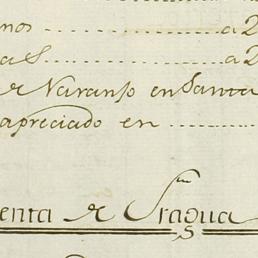 nos ........... a 2
as ............ a 2
de Naranjo en Santa
apreciado en .......
enta de Fragua